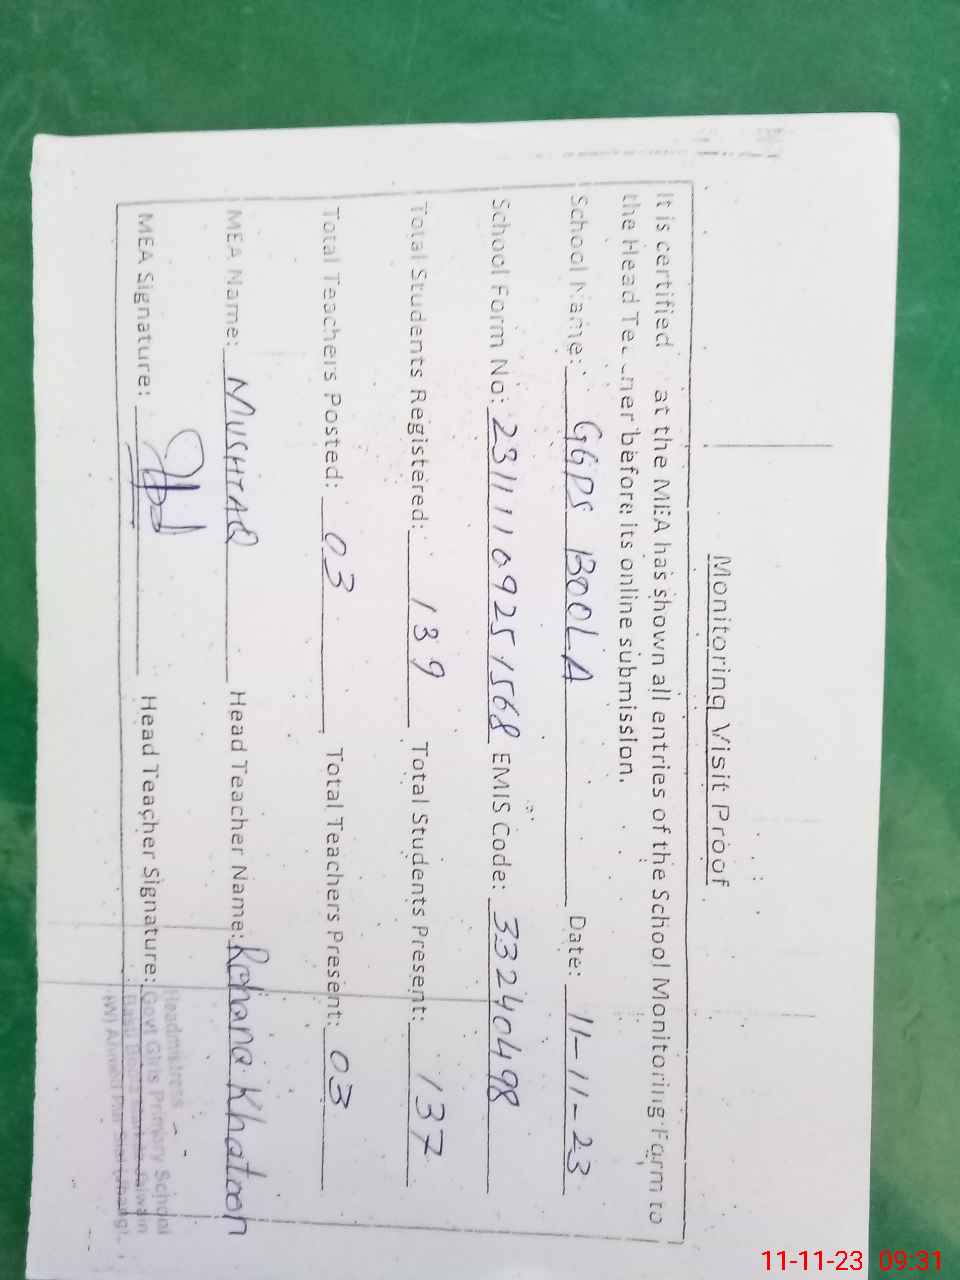 Monitoring Visit Proof
It is certified at the MEA has shown all entries of the School Monitoring Form to
the Head before its online submission.
School Name: GGPS BOOLA Date: 11-11-23
School Form No: 23111109251568 EMIS Code: 33240498
Total Students Registered: 139 Total Students Present: 137
Total Teachers Posted: 03 Total Teachers Present: 03
MEA Name: MUSHTAQ Head Teacher Name: Rehana Khatoon
MEA Signature: Head Teacher Signature:
Headmistress
Govt Girls Primary School
11-11-23 09:31